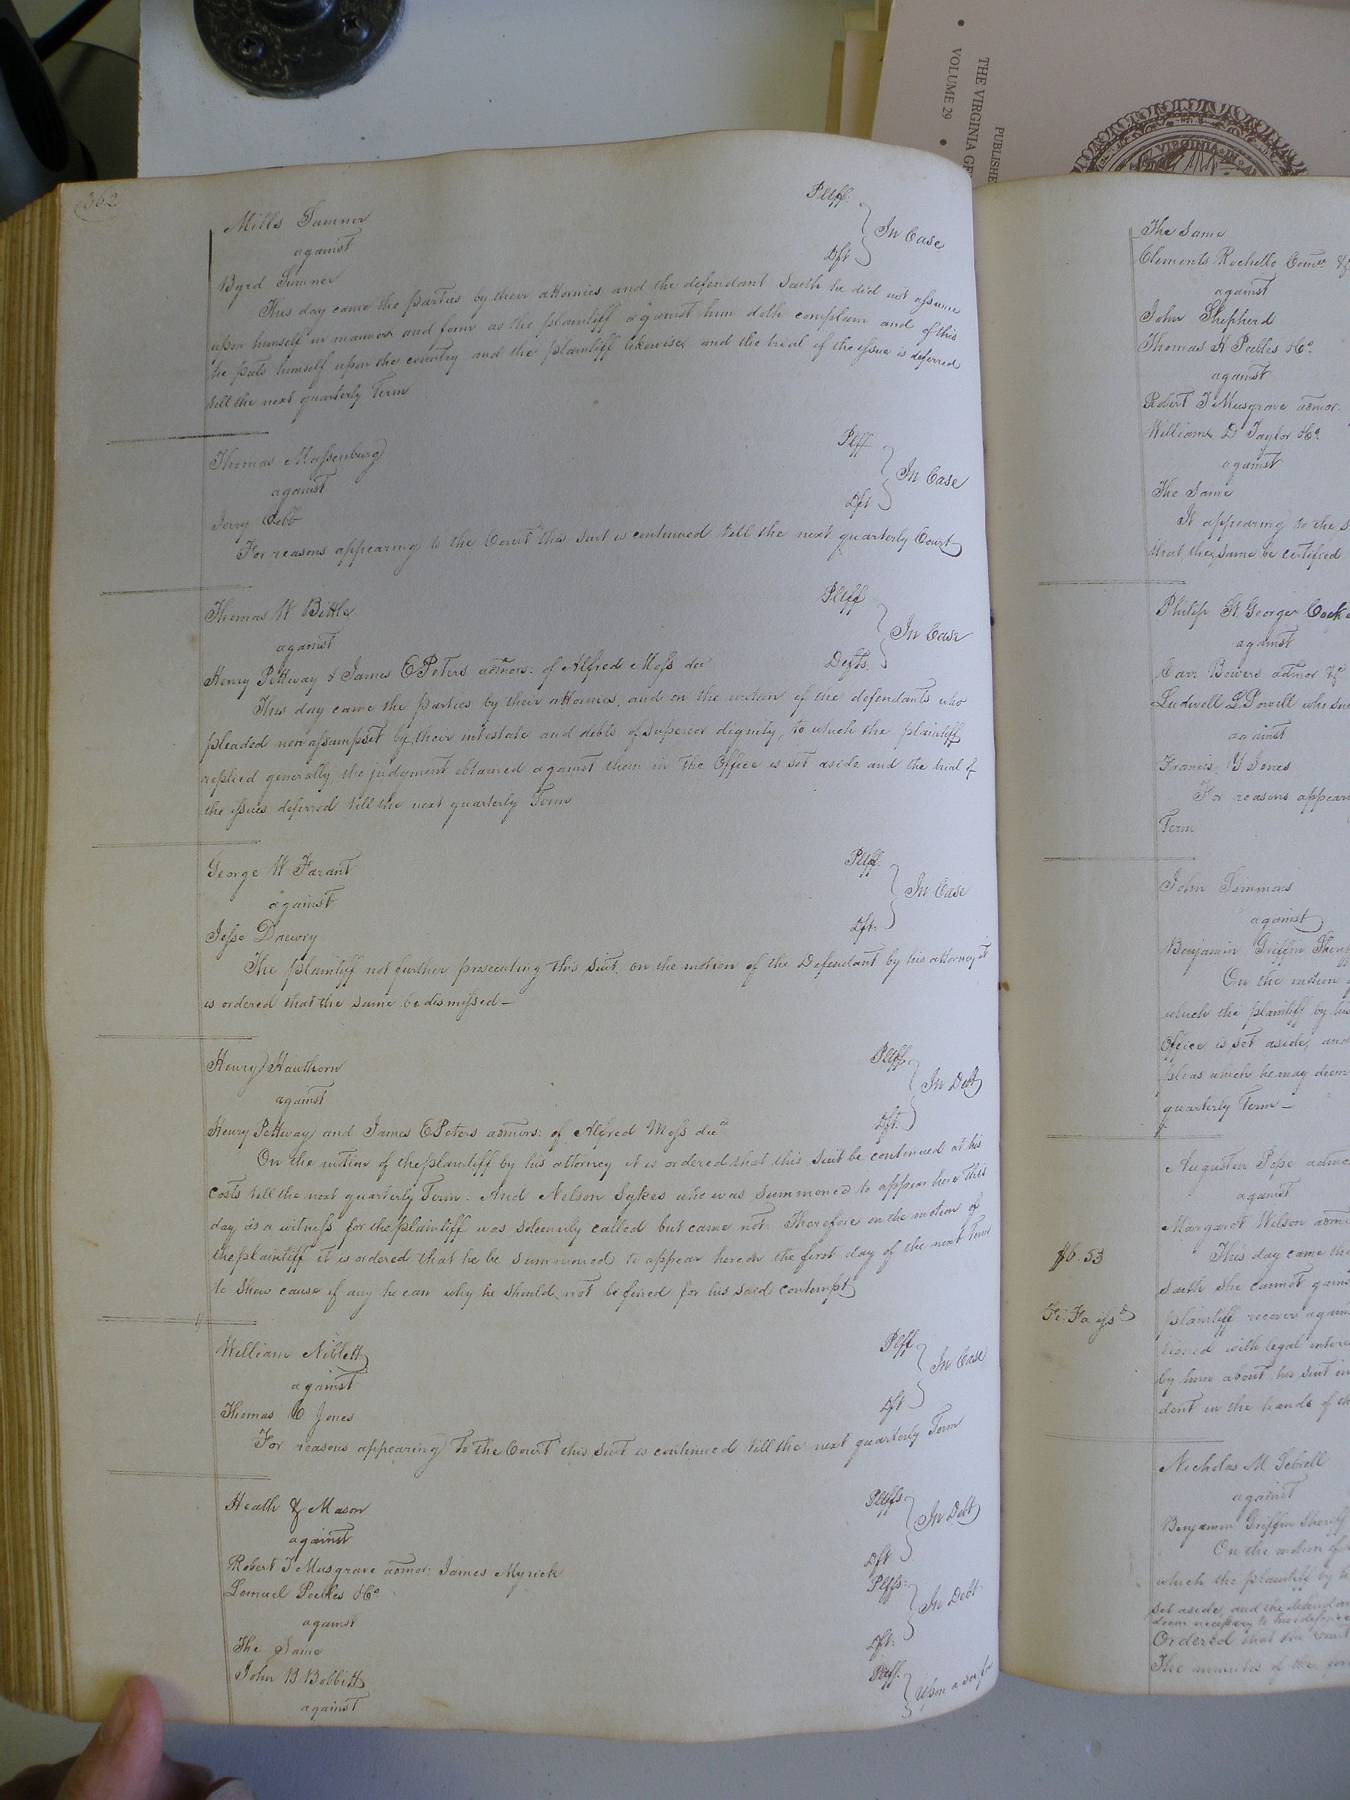 THE VIRGINIA GE
VOLUME 29
PUBLISHE
VIRGINIA
362
Mills Sumner Pltff
against In Case
Byrd Sumner Dft
This day came the parties by their attornies and the defendant saith he did not assume
upon himself in manner and form as the plaintiff against him doth complain and of this
he puts himself upon the country and the plaintiff likewise and the trial of the issue is deferred
till the next quarterly Term
Thomas Massenburg Plff
against In Case
Jerry Cobb Dft
For reasons appearing to the Court this suit is continued till the next quarterly Court
Thomas W Bittle Pltff
against In Case
Henry Pettway & James E Peters admors: of Alfred Moss dec
Defts.
This day came the parties by their attornies, and on the motion of the defendants who
pleaded non assampset by their intestate and debts of superior dignity, to which the plaintiff
replied generally, the judgment obtained against them in the Office is set aside and the trial of
the issues deferred till the next quarterly Term
George W Farant Pltff.
against In Case
Jesse Drewry Dft.
The plaintiff not further prosecuting this suit, on the motion of the Defendant by his attorney it
is ordered that the same be dismissed—
Henry Hauthorn Pltff.
against In Debt
Henry Pettway and James E Peters admors: of Alfred Moss decd Dft.
On the motion of the plaintiff by his attorney it is ordered that this suit be continued at his
costs till the next quarterly Term. And Nelson Sykes who was summoned to appear here this
day as a witness for the plaintiff was solemnly called but came not. Therefore on the motion of
the plaintiff it is ordered that he be summoned to appear here on the first day of the next Term
to shew cause if any he can why he should not be fined for his said contempt
William Niblett Plff
against In Case
Thomas C Jones Dft
For reasons appearing to the Court this suit is continued till the next quarterly Term
Heath & Mason Pltffs.
against In Debt
Robert T Musgrave admor: James Myrick Dft
Lemuel Peebles & Co. Pltffs:
against In Debt
The Same Dft.
John B Bobbitt Pltff.
against Upon a sci fa
The Same
Clements Rochelle Comr. &
against
John Shepherd
Thomas H Peebles & Co.
against
Robert T Musgrave admor.
William D Taylor & Co.
against
The Same
It appearing to the
that the same be certified
Philip St. George Cock
against
Carr Bowers admor &c
Ludwell L Powell who su
against
Francis Y Jones
For reasons appear
Term
John Simmons
against
Benjamin Griffin Sheriff
On the motion
which the plaintiff by his
Office is set aside, and
pleas which he may deem
quarterly Term—
Augustin Pope admor
against
Margaret Wilson adm
$6.53 This day came the
saith she cannot gains
Fi: Fa issd. plaintiff recover again
tioned with legal intere
by him about his suit in
dent in the hands of th
Nicholas M Sebrell
against
Benjamin Griffin Sheriff
On the motion of
which the plaintiff by h
set aside, and the defendan
deem necessary to his defence
Ordered that the Court
The minutes of the